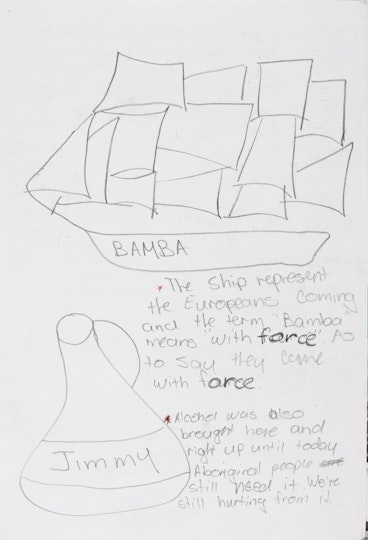 BAMBA
* The ship represent
the Europeans coming
and the term "Bamba"
means "with force". As
to say they come
with force.
* Alcohol was also
brought here and
right up until today
Aboriginal people
still need it. We're
still hurting from it
Jimmy